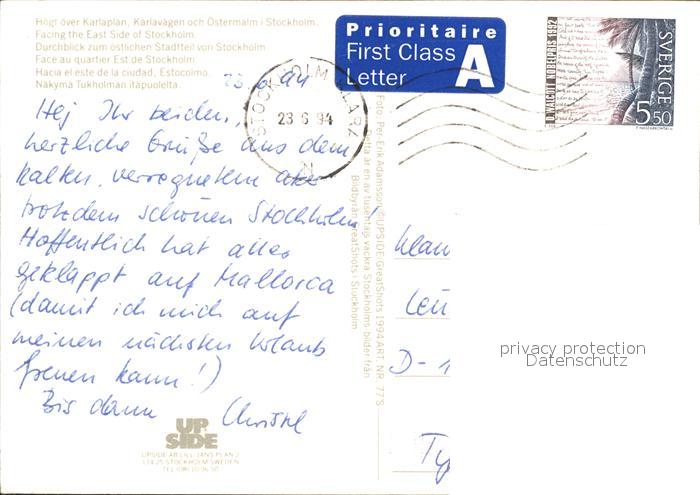 Högt över Karlaplan, Karlavägen och Östermalm i Stockholm.
Facing the East Side of Stockholm.
Durchblick zum östlichen Stadtteil von Stockholm.
Face au quartier Est de Stockholm.
Hacia el este de la ciudad, Estocolmo.
Näkymä Tukholman itäpuolelta.
23.6.94
Hej Ihr beiden,
herzliche Grüße aus dem
kalten, verregneten aber
trotzdem schönen Stockholm!
Hoffentlich hat alles
geklappt auf Mallorca
(damit ich mich auf
meinen nächsten Urlaub
freuen kann!)
Bis dann Christel
UP
SIDE
UPSIDE AB LILL-JANS PLAN 2
114 25 STOCKHOLM SWEDEN
TEL (08)
Prioritaire
First Class
Letter
A
STOCKHOLM KLARA
23 6 94
Foto: Per-Erik Adamsson © UPSIDE/GreatShots 1994 ART. NR. 77 S
Detta är en av tusentals vackra Stockholms-bilder från
Bildbyrån GreatShots i Stockholm
D. WALCOTT NOBELPRIS 1992
SVERIGE
5 50
D-1
Ty
privacy protection
Datenschutz